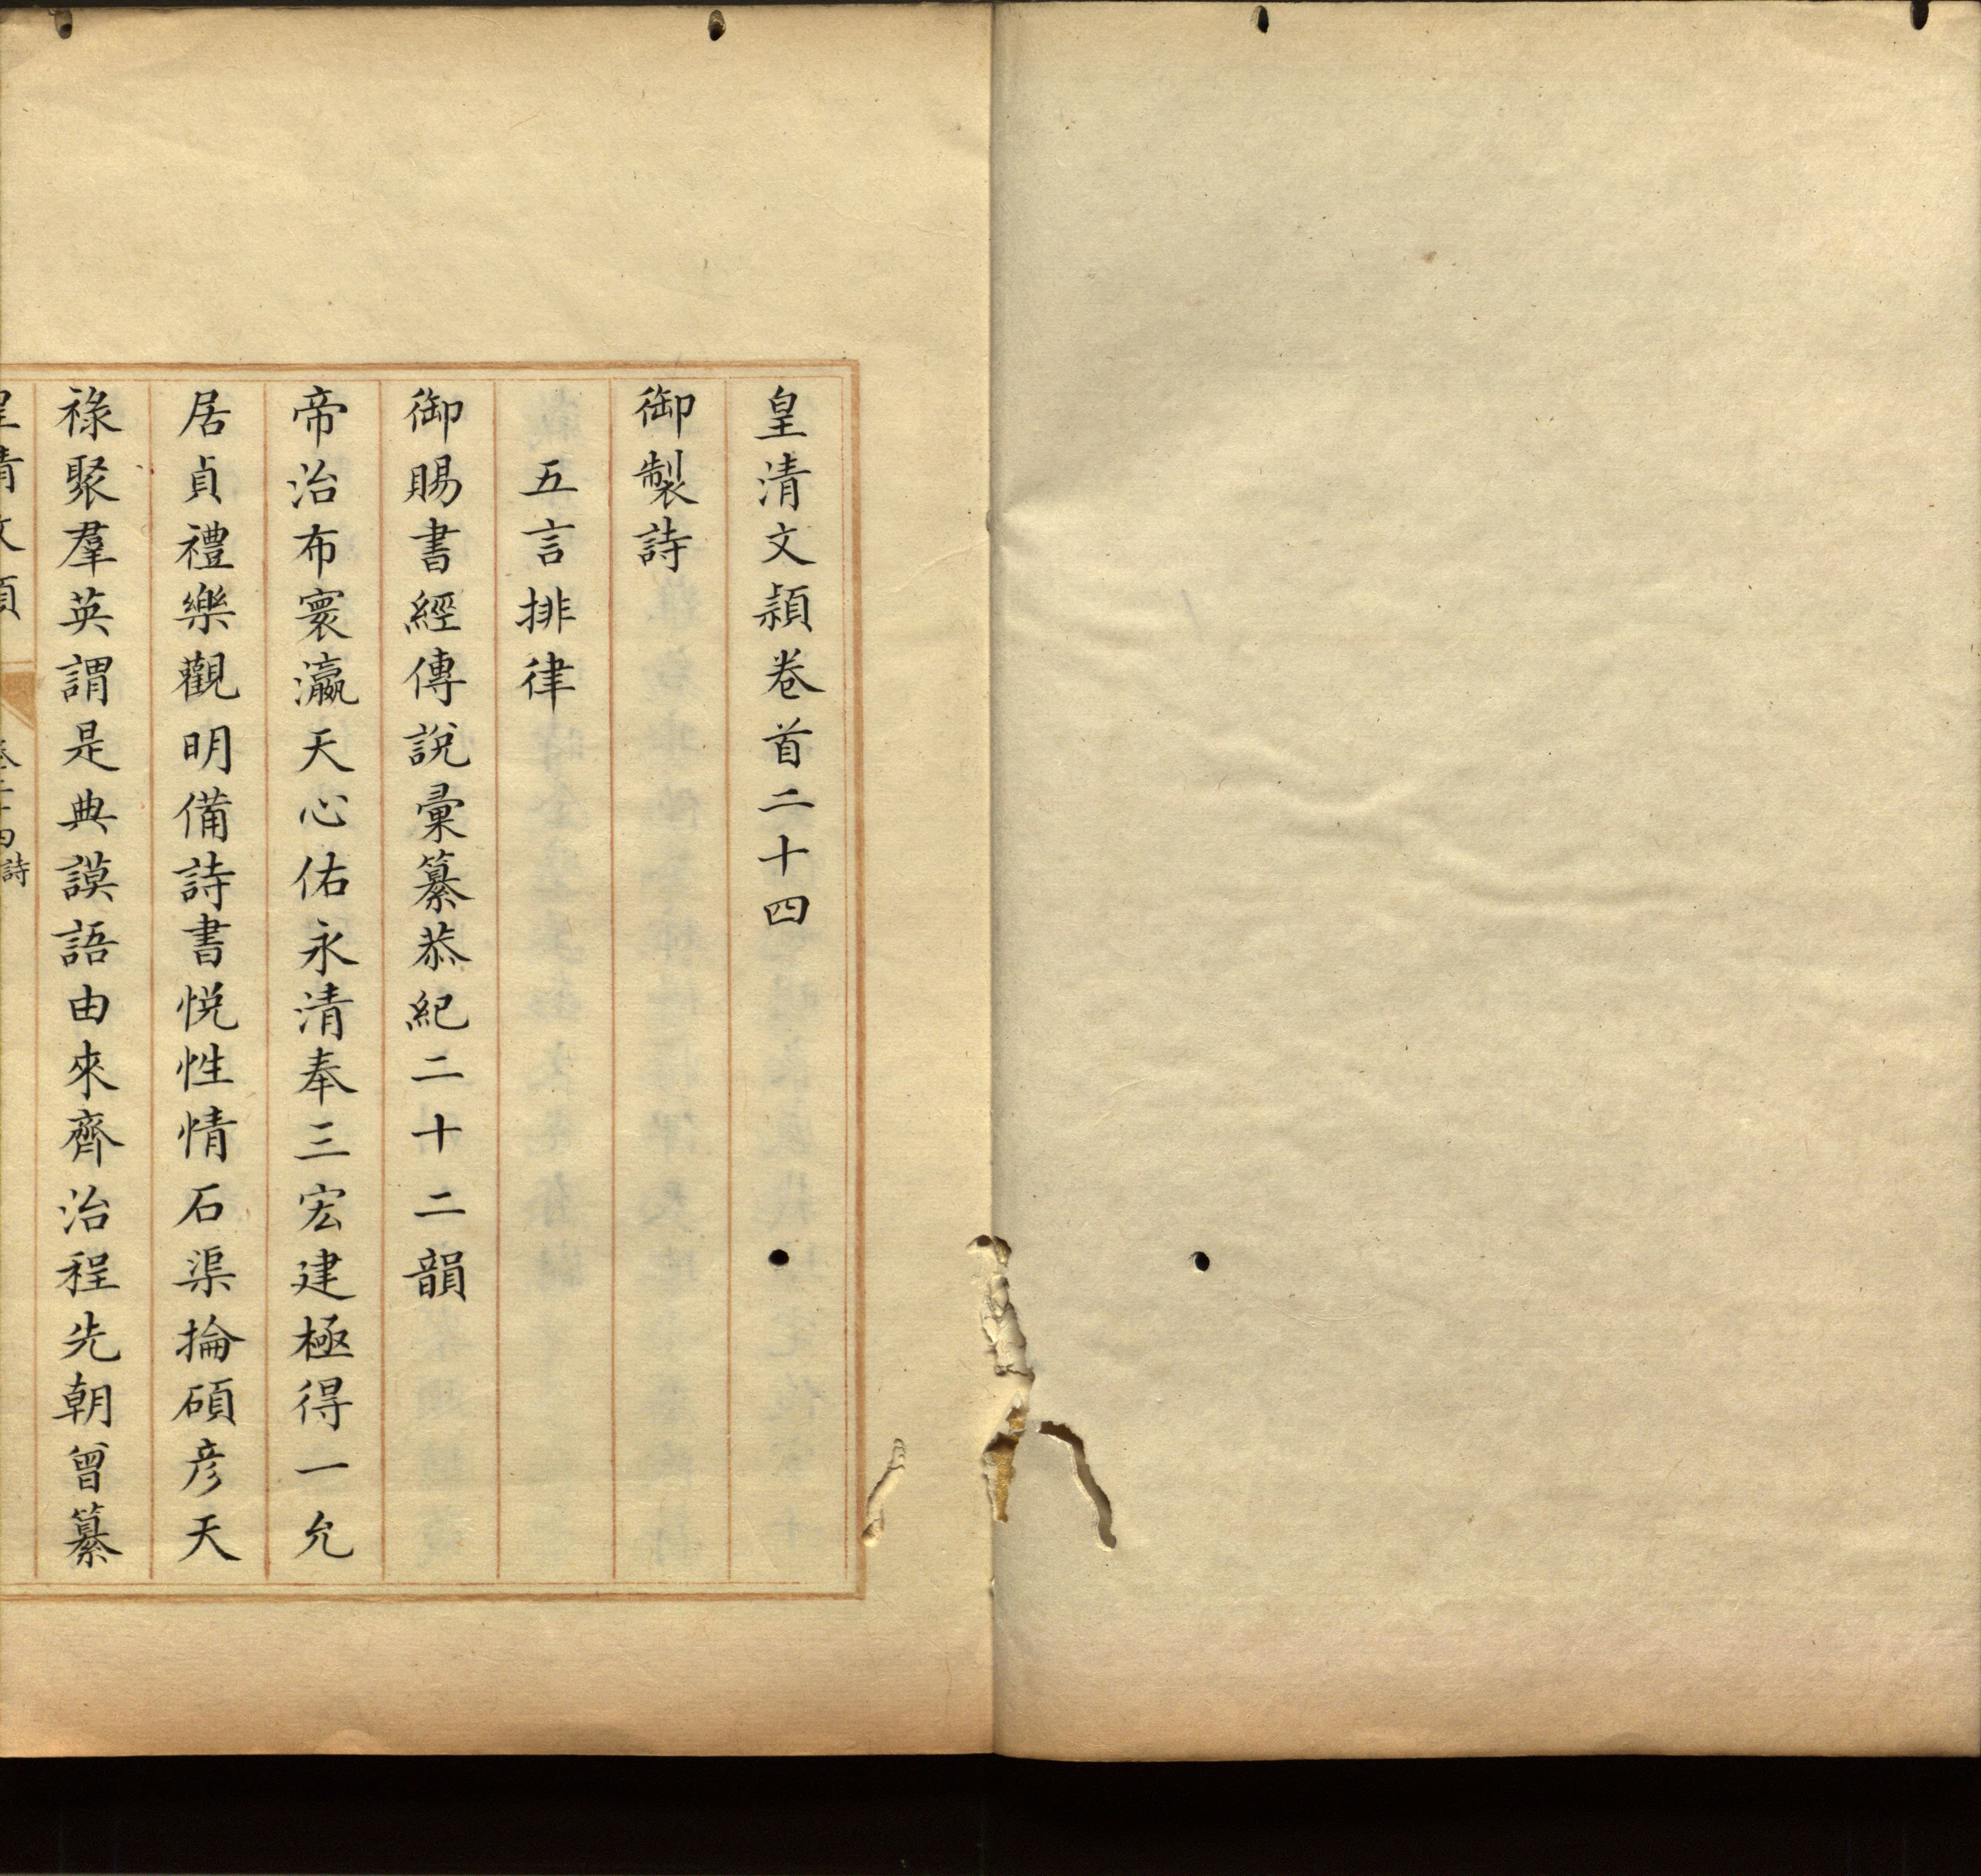 皇清文穎卷首二十四
御製詩
五言排律
御賜書經傳說彙纂恭紀二十二韻
帝治布寰瀛天心佑永清奉三宏建極得一允
居貞禮樂觀明備詩書悅性情石渠掄碩彥天
祿聚羣英謂是典謨語由來齊治程先朝曾纂